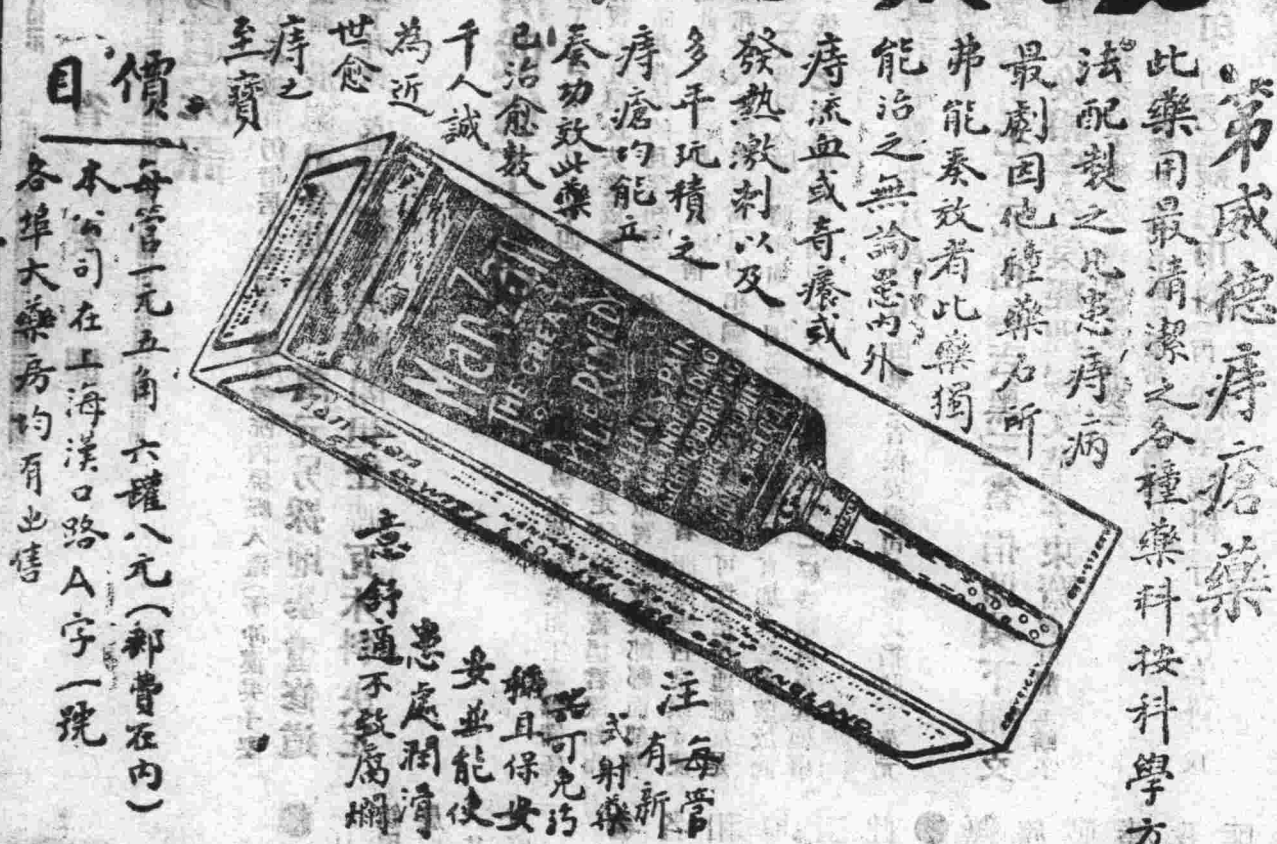 第威德痔瘡藥
此藥用最清潔之各種藥料按科學方
法配製之凡患痔病
最劇因他種藥石所
弗能奏效者此藥獨
能治之無論患內外
痔流血或奇癢或
發熱激刺以及
多年玩積之
痔瘡均能立
奏功效此藥
已治愈數
千人誠
為近
世愈
痔之
至寶
Man Zan
THE GREAT
PILE REMEDY
Man Zan
ENGLAND
注意
每管
有新
式射藥
器可免污
穢且保安
安並能使
患處潤滑
舒適不致腐爛
價目
每管一元五角 六罐八元(郵費在內)
本公司在上海漢口路A字一號
各埠大藥房均有出售